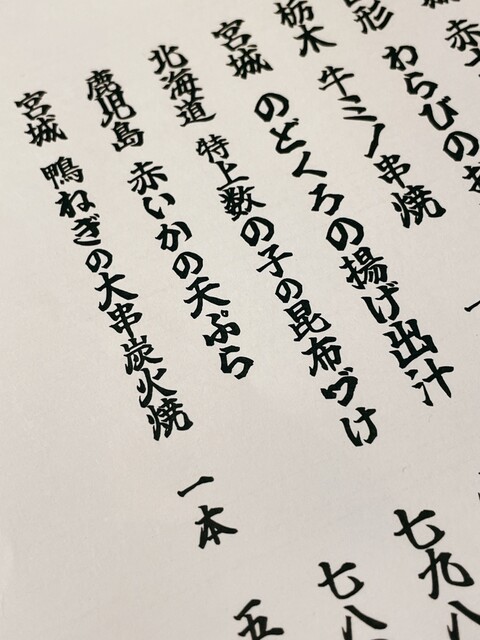 赤
形 わらびの
栃木 牛ミノ串焼
宮城 のどくろの揚げ出汁
北海道 特上数の子の昆布づけ 七九八
鹿児島 赤いかの天ぷら 七八
宮城 鴨ねぎの大串炭火焼 一本 五